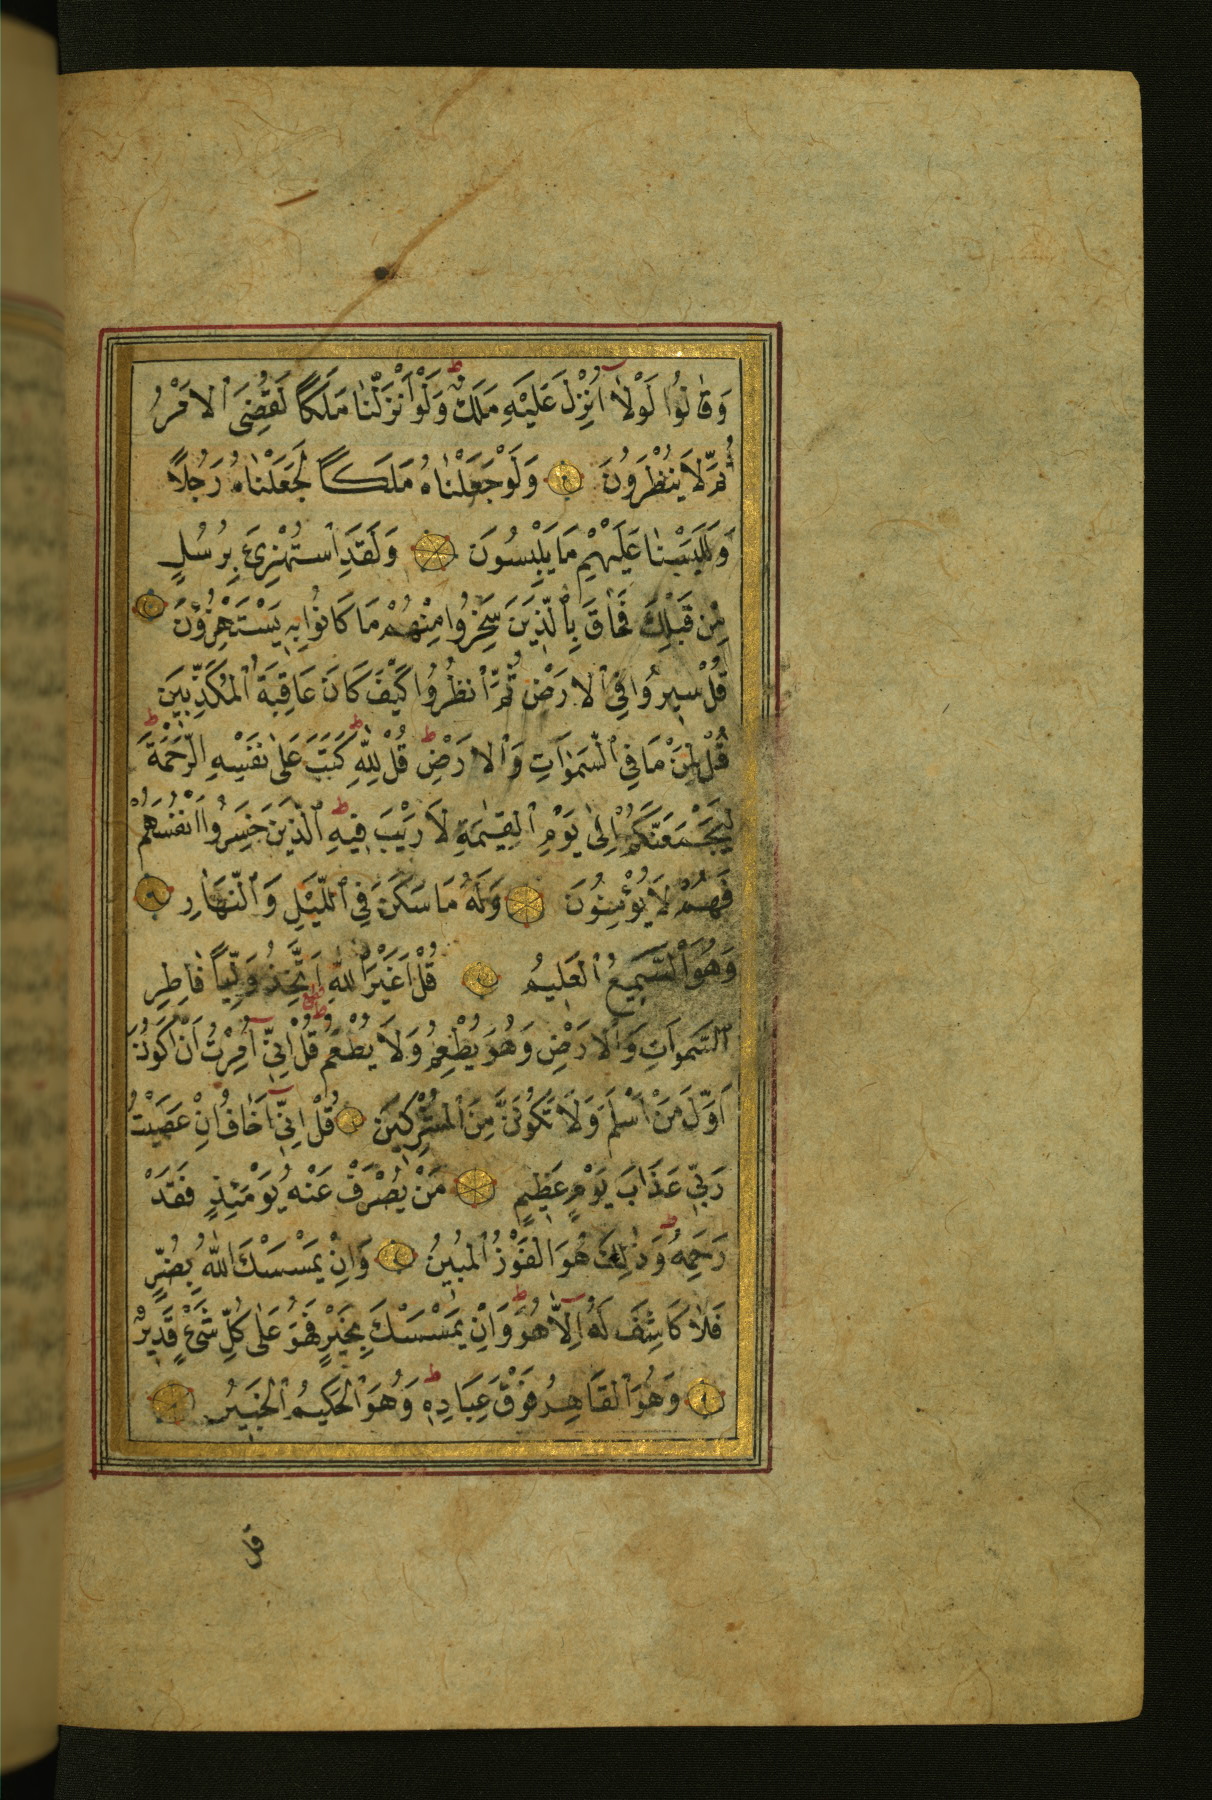 وَقَالُوا لَوْلَا اُنْزِلَ عَلَيْهِ مَلَكٌ وَلَوْ اَنْزَلْنَا مَلَكًا لَقُضِيَ الْاَمْرُ
ثُمَّ لَا يُنْظَرُونَ وَلَوْ جَعَلْنَاهُ مَلَكًا لَجَعَلْنَاهُ رَجُلًا
وَلَلَبَسْنَا عَلَيْهِمْ مَا يَلْبِسُونَ وَلَقَدِ اسْتُهْزِئَ بِرُسُلٍ
مِنْ قَبْلِكَ فَحَاقَ بِالَّذِينَ سَخِرُوا مِنْهُمْ مَا كَانُوا بِهِ يَسْتَهْزِؤُنَ
قُلْ سِيرُوا فِي الْاَرْضِ ثُمَّ انْظُرُوا كَيْفَ كَانَ عَاقِبَةُ الْمُكَذِّبِينَ
قُلْ لِمَنْ مَا فِي السَّمٰوَاتِ وَالْاَرْضِ قُلْ لِلّٰهِ كَتَبَ عَلٰى نَفْسِهِ الرَّحْمَةَ
لَيَجْمَعَنَّكُمْ اِلٰى يَوْمِ الْقِيٰمَةِ لَا رَيْبَ فِيهِ الَّذِينَ خَسِرُوا اَنْفُسَهُمْ
فَهُمْ لَا يُؤْمِنُونَ وَلَهُ مَا سَكَنَ فِي اللَّيْلِ وَالنَّهَارِ
وَهُوَ السَّمِيعُ الْعَلِيمُ قُلْ اَغَيْرَ اللّٰهِ اَتَّخِذُ وَلِيًّا فَاطِرِ
السَّمٰوَاتِ وَالْاَرْضِ وَهُوَ يُطْعِمُ وَلَا يُطْعَمُ قُلْ اِنِّي اُمِرْتُ اَنْ اَكُونَ
اَوَّلَ مَنْ اَسْلَمَ وَلَا تَكُونَنَّ مِنَ الْمُشْرِكِينَ قُلْ اِنِّي اَخَافُ اِنْ عَصَيْتُ
رَبِّي عَذَابَ يَوْمٍ عَظِيمٍ مَنْ يُصْرَفْ عَنْهُ يَوْمَئِذٍ فَقَدْ
رَحِمَهُ وَذٰلِكَ هُوَ الْفَوْزُ الْمُبِينُ وَاِنْ يَمْسَسْكَ اللّٰهُ بِضُرٍّ
فَلَا كَاشِفَ لَهُ اِلَّا هُوَ وَاِنْ يَمْسَسْكَ بِخَيْرٍ فَهُوَ عَلٰى كُلِّ شَيْءٍ قَدِيرٌ
وَهُوَ الْقَاهِرُ فَوْقَ عِبَادِهِ وَهُوَ الْحَكِيمُ الْخَبِيرُ
قل